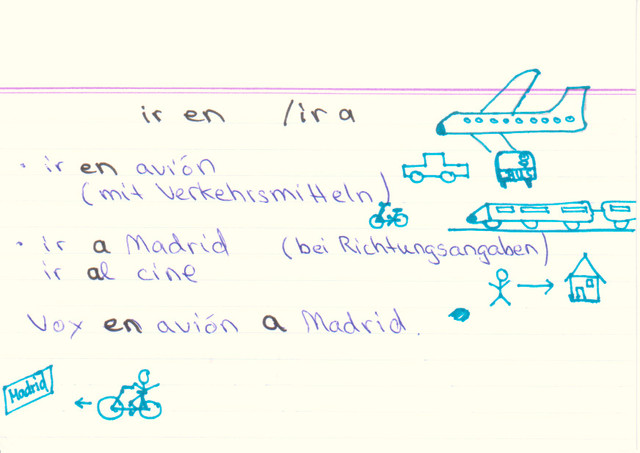 ir en /ir a
· ir en avión
(mit Verkehrsmitteln)
· ir a Madrid (bei Richtungsangaben)
ir al cine
Voy en avión a Madrid.
Madrid